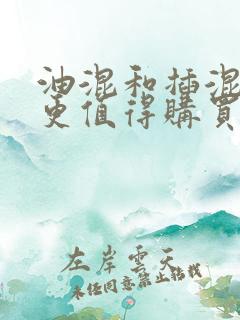 油混和插混
更值得購買
左岸雲天
未经同意禁止转载